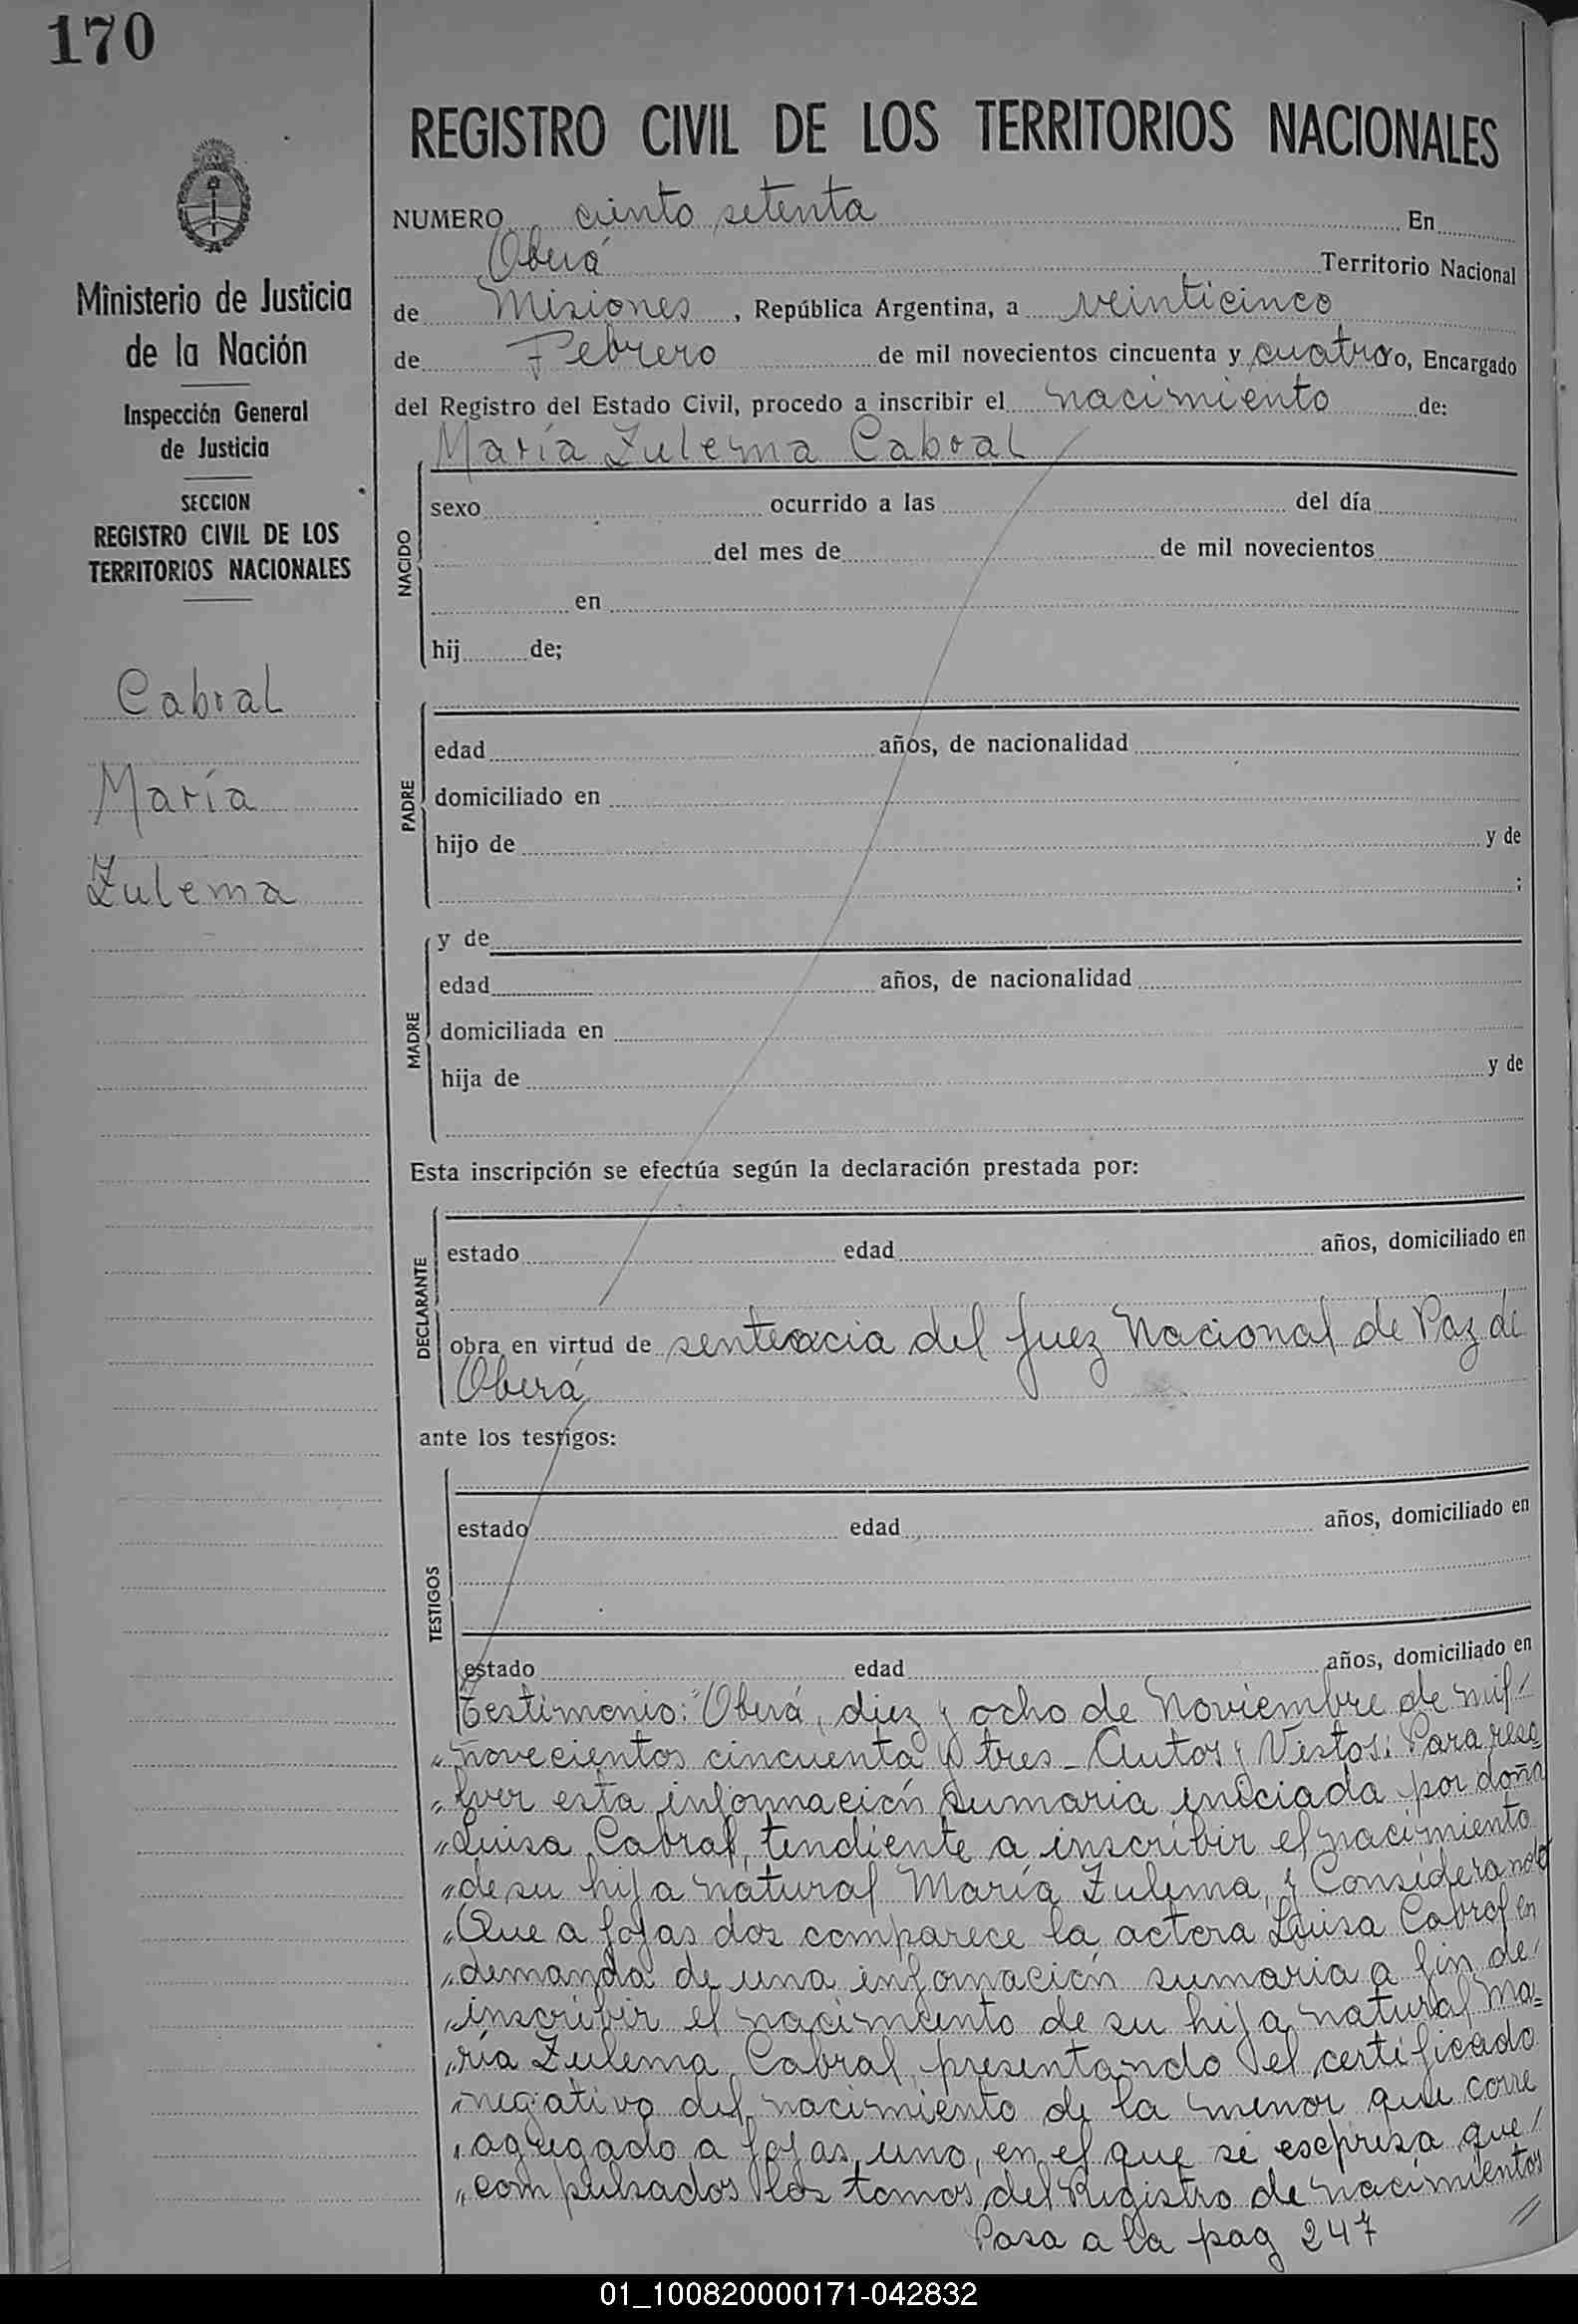 170
REGISTRO CIVIL DE LOS TERRITORIOS NACIONALES
Ministerio de Justicia
de la Nación
Inspección General
de Justicia
SECCION
REGISTRO CIVIL DE LOS
TERRITORIOS NACIONALES
Cabral
María
Zulema
NUMERO ciento setenta En
Oberá Territorio Nacional
de Misiones, República Argentina, a veinticinco
de Febrero de mil novecientos cincuenta y cuatro o, Encargado
del Registro del Estado Civil, procedo a inscribir el nacimiento de:
María Zulema Cabral
NACIDO
sexo ocurrido a las del día
del mes de de mil novecientos
en
hij de;
PADRE
edad años, de nacionalidad
domiciliado en
hijo de y de
;
MADRE
y de
edad años, de nacionalidad
domiciliada en
hija de y de
Esta inscripción se efectúa según la declaración prestada por:
DECLARANTE
estado edad años, domiciliado en
obra en virtud de sentencia del Juez Nacional de Paz de
Oberá
ante los testigos:
TESTIGOS
estado edad años, domiciliado en
estado edad años, domiciliado en
Testimonio: "Oberá, diez y ocho de Noviembre de mil/
"novecientos cincuenta y tres - Autos y Vistos: Para reso=
"lver esta información sumaria iniciada por doña
"Luisa Cabral, tendiente a inscribir el nacimiento
"de su hija natural María Zulema, y Considerando
"Que a fojas dos comparece la actora Luisa Cabral en
"demanda de una información sumaria a fin de/
"inscribir el nacimiento de su hija natural Ma=
"ría Zulema Cabral, presentando el certificado
"negativo del nacimiento de la menor que corre
"agregado a fojas uno, en el que se escpresa que/
"compulsados los tomos del Registro de nacimientos
Pasa a la pag 247 //
01_100820000171-042832